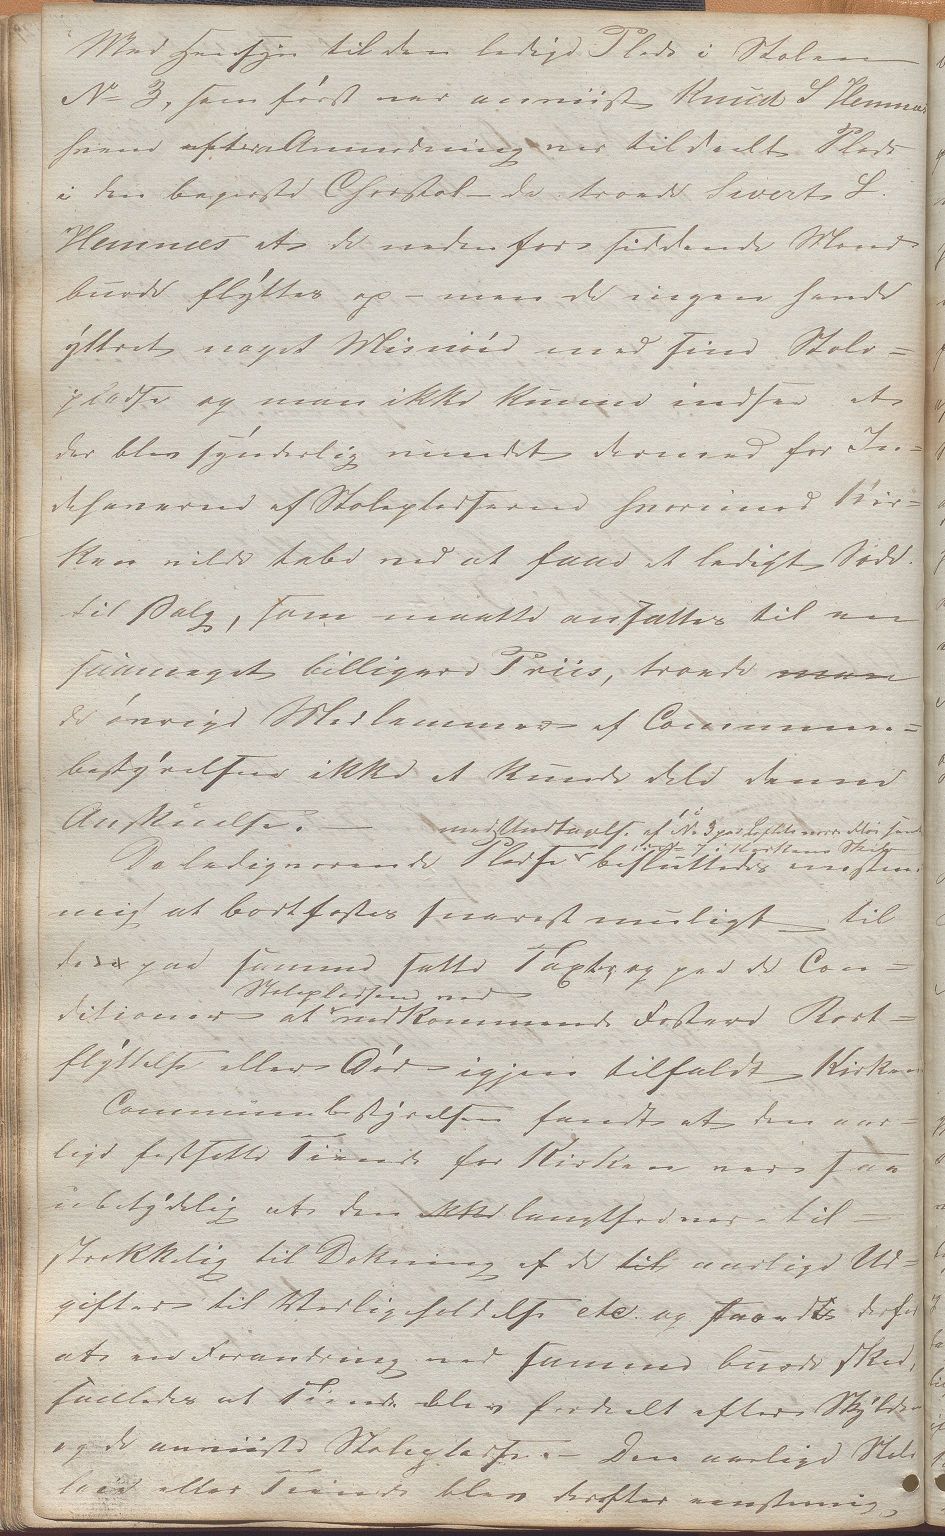 Med Hensyn til den ledige Plads i Stolen
No 3, som først var anviist Knud S Hemnæs
hvem efter Anmodning var tildeelt Plads
i den begjerte Chorstol – da troede Sivert S.
Hemnæs at de nedenfor siddende Mænd
burde flyttes op – men da ingen havde
yttret noget Misnøie med sine Stole=
pladse og man ikke kunne indsee at
der blev synderlig vundet dermed for In=
dehaverne af Stolepladserne hvorimod Kir=
ken vilde tabe ved at faae et ledigt Sæde
til Salg, som maatte ansættes til en
saameget billigere Priis, troede man
de øvrige Medlemmer af Commune=
bestyrelsen ikke at kunde dele denne
Anskuelse. –
med Undtagelse af No 3 paa
De ledigværende Pladse besluttedes enstem
mig at bortfæstes snarest muligt til
den paa samme satte Taxt, og paa de Con=
Stolepladsen ved
ditioner at vedkommende Fæsters Bort=
flyttelse eller Død igjen tilfaldt Kirken
Communebestyrelsen fandt at den aar=
lige fastsatte Tiende for Kirken var saa
ubetydelig at den ikke langtfra var til=
strækkelig til Dækning af de til aarlige Ud=
gifter til Vedligeholdelse etc og derfor
at en Forandring ved samme burde skee,
saaledes at Tiende blev fordeelt efter Skylden
og de anviiste Stolepladse. – Den aarlige Stole
leie eller Tiende blev derefter eenstemmig